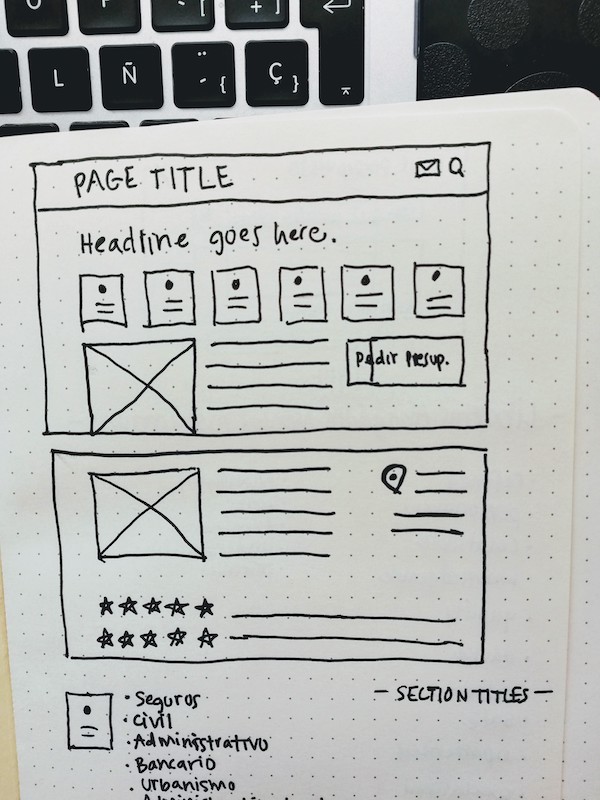 L Ñ ¨ ´ { Ç }
PAGE TITLE
Headline goes here.
Pedir Presup.
- SECTION TITLES -
· Seguros
· Civil
· Administrativo
· Bancario
· Urbanismo